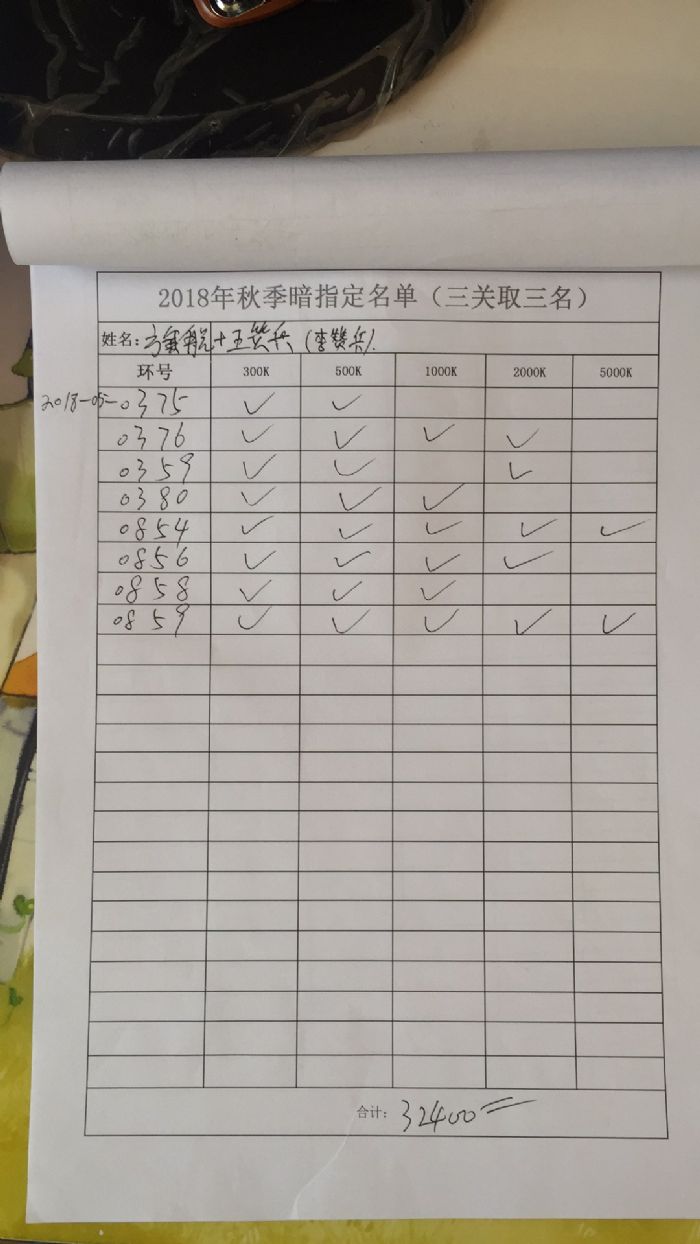 2018年秋季暗指定名单（三关取三名）
姓名: +王赞兵 (李赞兵).
环号 300K 500K 1000K 2000K 5000K
2018-05-0375 ✓ ✓
0376 ✓ ✓ ✓ ✓
0359 ✓ ✓ ✓
0380 ✓ ✓ ✓
0854 ✓ ✓ ✓ ✓ ✓
0856 ✓ ✓ ✓ ✓
0858 ✓ ✓ ✓
0859 ✓ ✓ ✓ ✓ ✓
合计: 32400=